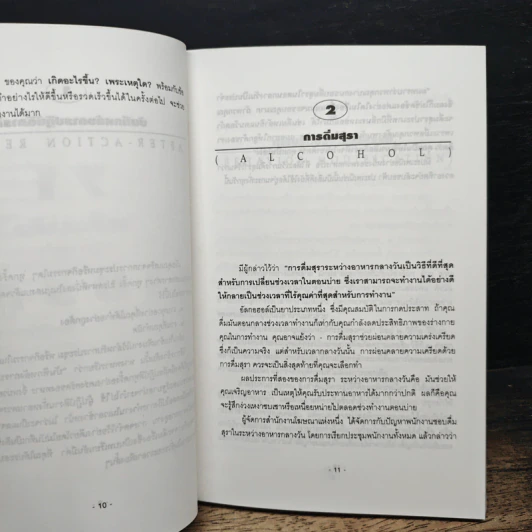 ของคุณว่า เกิดอะไรขึ้น? เพราะเหตุใด? พร้อมกับ
อย่างไรให้ดีขึ้นหรือรวดเร็วขึ้นได้ในครั้งต่อไป จะช่วย
งานได้มาก
- 10 -
2
การดื่มสุรา
( A L C O H O L )
มีผู้กล่าวไว้ว่า "การดื่มสุราระหว่างอาหารกลางวันเป็นวิธีที่ดีที่สุด
สำหรับการเปลี่ยนช่วงเวลาในตอนบ่าย ซึ่งเราสามารถจะทำงานได้อย่างดี
ให้กลายเป็นช่วงเวลาที่ไร้คุณค่าที่สุดสำหรับการทำงาน"
อัลกอฮอล์เป็นยาประเภทหนึ่ง ซึ่งมีคุณสมบัติในการกดประสาท ถ้าคุณ
ดื่มมันตอนกลางช่วงเวลาทำงานก็เท่ากับคุณกำลังลดประสิทธิภาพของร่างกาย
คุณในการทำงาน คุณอาจแย้งว่า - การดื่มสุราช่วยผ่อนคลายความเคร่งเครียด
ซึ่งก็เป็นความจริง แต่สำหรับเวลากลางวันนั้น การผ่อนคลายความเครียดด้วย
การดื่มสุรา ควรจะเป็นสิ่งสุดท้ายที่คุณจะเลือกทำ
ผลประการที่สองของการดื่มสุรา ระหว่างอาหารกลางวันคือ มันช่วยให้
คุณเจริญอาหาร เป็นเหตุให้คุณรับประทานอาหารได้มากกว่าปกติ ผลก็คือคุณ
จะรู้สึกง่วงเหงาซบเซาหรือเหนื่อยหน่ายไปตลอดช่วงทำงานตอนบ่าย
ผู้จัดการสำนักงานโฆษณาแห่งหนึ่ง ได้จัดการกับปัญหาพนักงานชอบดื่ม
สุราในระหว่างอาหารกลางวัน โดยการเรียกประชุมพนักงานทั้งหมด แล้วกล่าวว่า
- 11 -